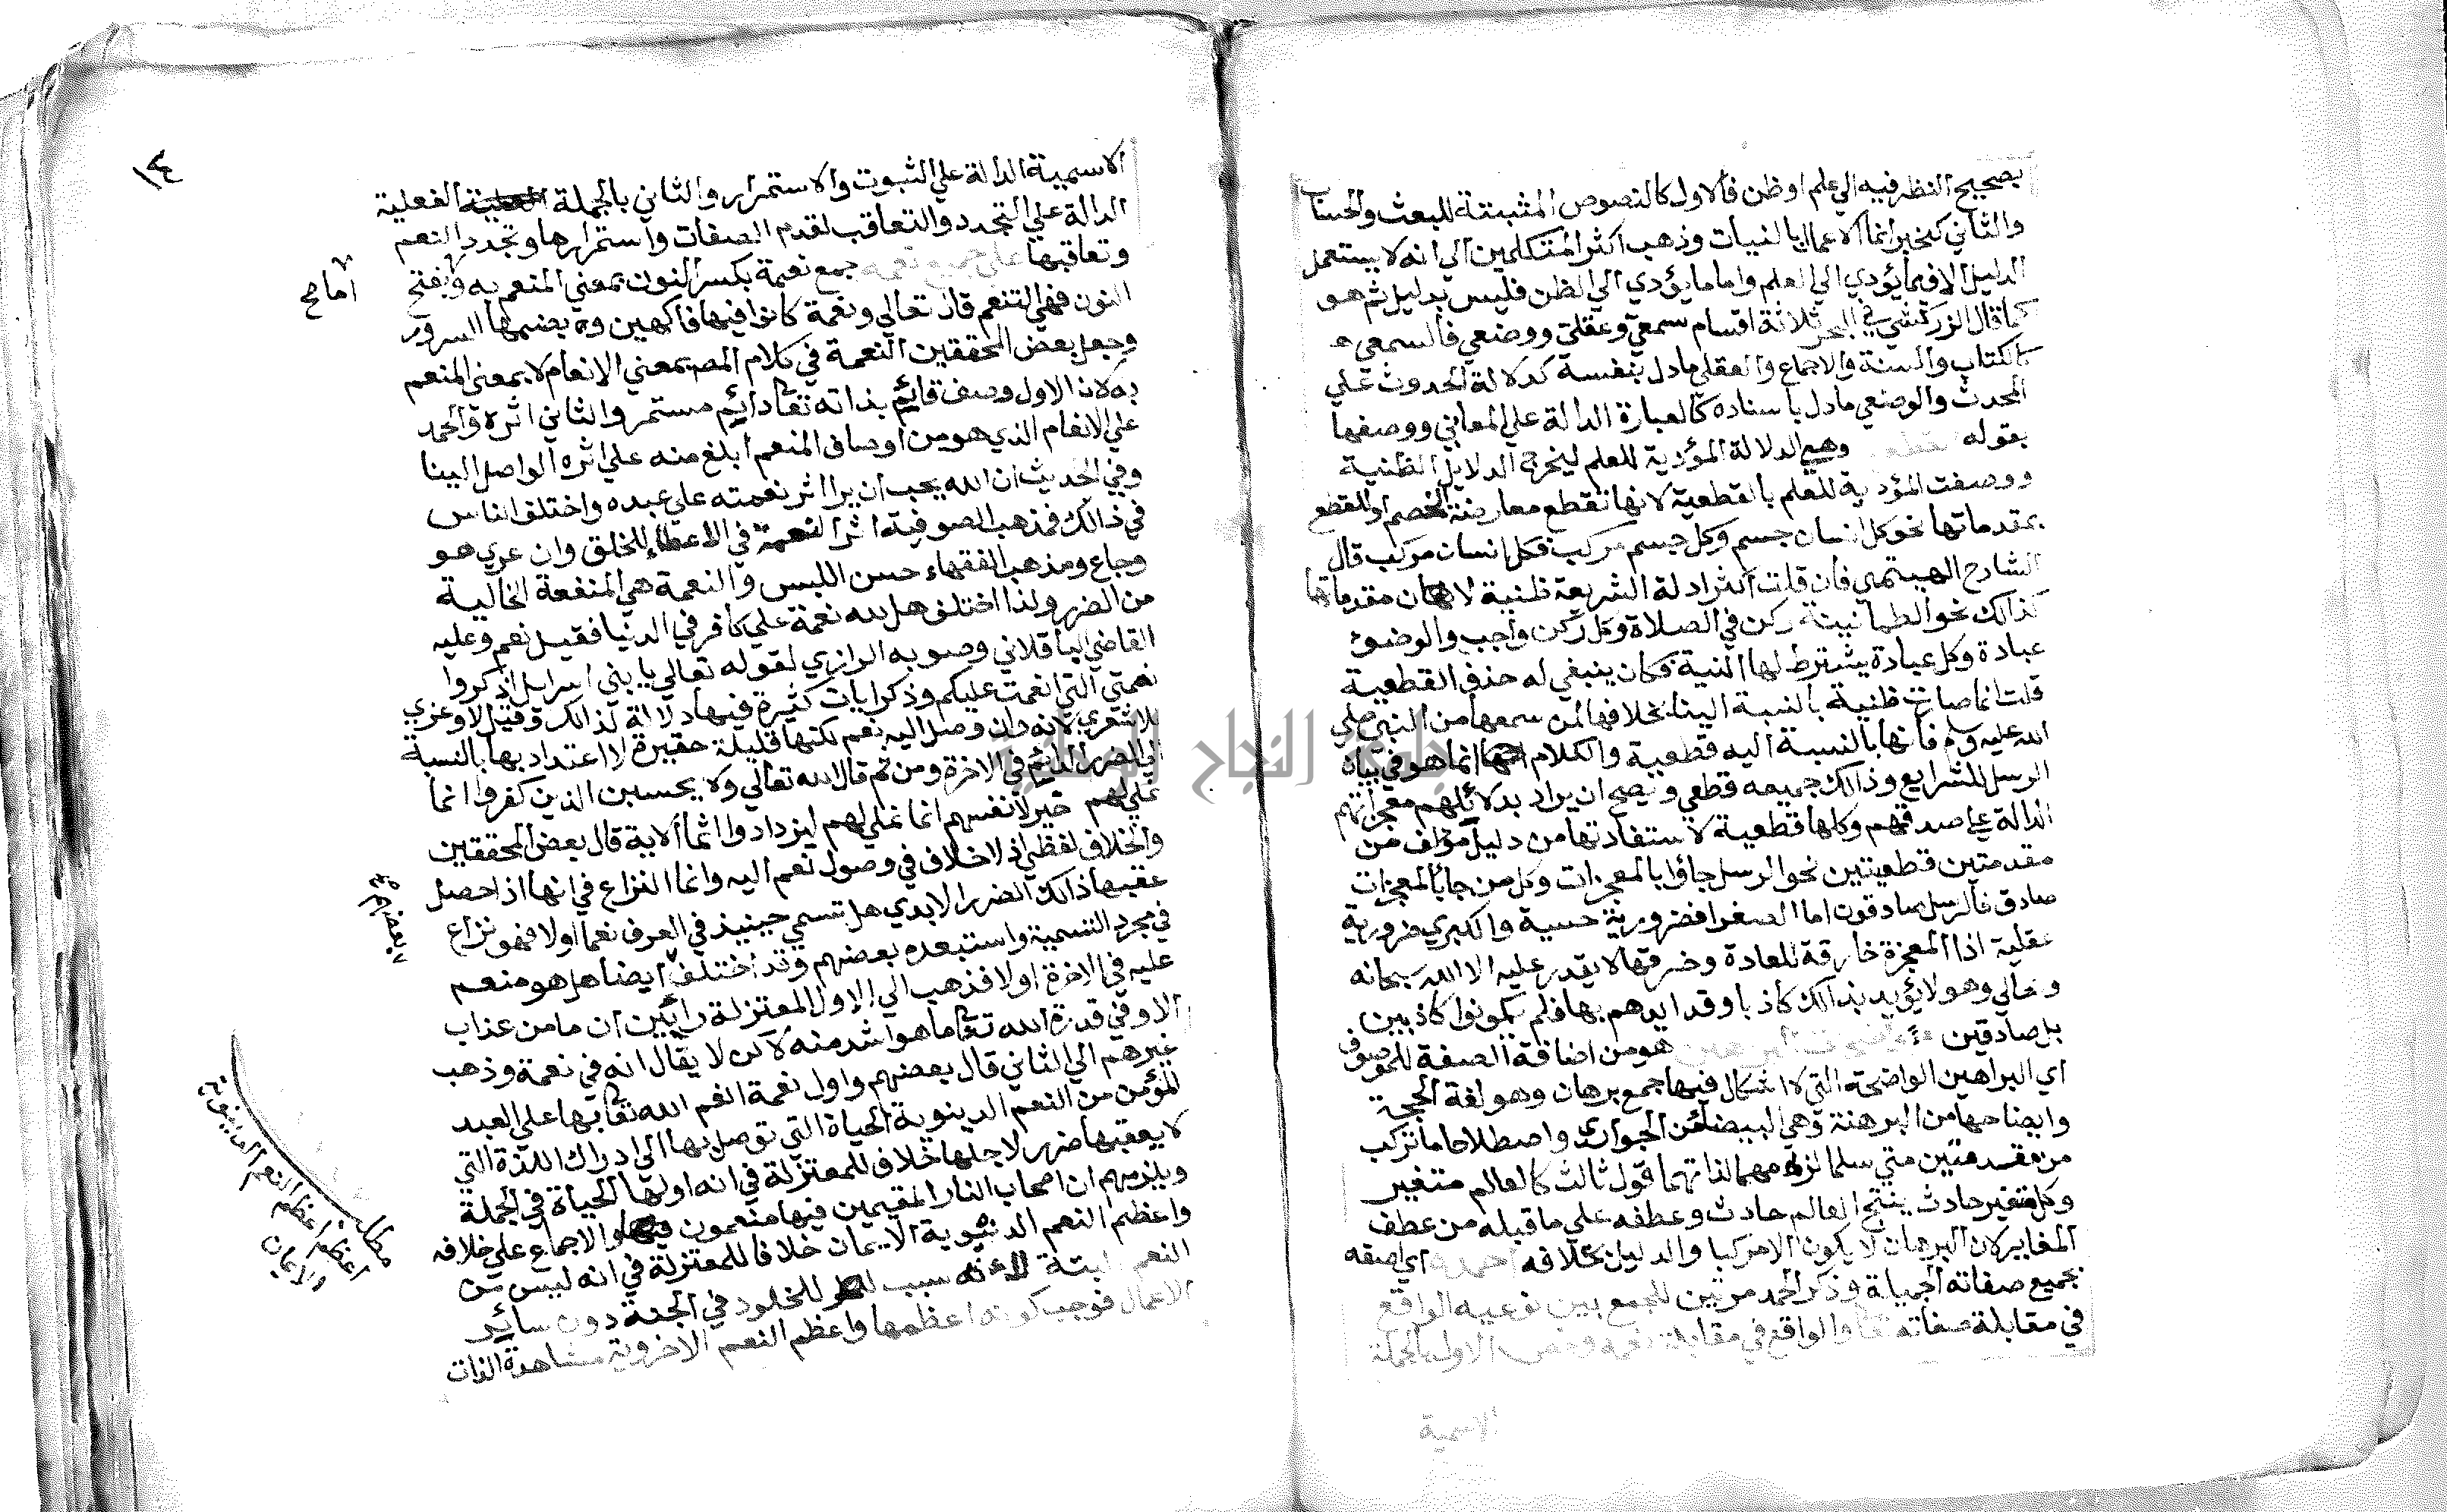 بصحيح النظر فيه الي علم او ظن فالاول كالنصوص المثبتة للبعث والحساب
والثاني كخبر انما الاعمال بالنيات وذهب اكثر المتكلمين الي انه لا يستعمل
الدليل الا فيما يؤدي الي العلم واما ما يؤدي الي الظن فليس بدليل ثم هو
كما قال الزركشي في البحر ثلاثة اقسام سمعي وعقلي ووضعي فالسمعي هو
الكتاب والسنة والاجماع والعقلي ما دل بنفسه كدلالة الحدوث علي
المحدث والوضعي ما دل باسناده كالعبارة الدالة علي المعاني ووصفها
بقوله وهي الدلالة المؤدية للعلم ليخرج الدلايل الظنية
ووصفت المؤدية للعلم بالقطعية لانها تقطع معارضة الخصم او للقطع
بمقدماتها نحو كل انسان جسم وكل جسم مركب فكل انسان مركب قال
الشارح الهيتمي فان قلت اكثر ادلة الشريعة ظنية لان مقدماتها
كذالك نحو الطمانينة ركن في الصلاة وكل ركن واجب والوضوء
عبادة وكل عبادة يشترط لها النية فكان ينبغي له حذف القطعية
قلت انما صارت ظنية بالنسبة الينا بخلافها لمن سمعها من النبي صلي
الله عليه وسلم فانها بالنسبة اليه قطعية والكلام انما هو في بيان
الرسل للشرايع وذالك جميعه قطعي ويصح ان يراد بدلائلهم معجزاتهم
الدالة علي صدقهم وكلها قطعية لاستفادتها من دليل مؤلف من
مقدمتين قطعيتين نحو الرسل جاؤا بالمعجزات وكل من جا بالمعجزات
صادق فالرسل صادقون اما الصغرا فضرورية حسية والكبري ضرورية
عقلية اذا المعجزة خارقة للعادة وخرقها لا يقدر عليه الا الله سبحانه
وتعالي وهو لا يؤيد بذالك كاذبا وقد ايدهم بها فلم يكونوا كاذبين
بل صادقين هو من اضافة الصفة للموصوف
اي البراهين الواضحة التي لا اشكال فيها جمع برهان وهو لغة الحجة
وايضاحها من البرهنة وهي البيضا من الجواري واصطلاحا ما تركب
من مقدمتين متي سلما لزم مهما لذاتهما قول ثالث كالعالم متغير
وكل متغير حادث ينتج العالم حادث وعطفه علي ما قبله من عطف
المغاير لان البرهان لا يكون الا مركبا والدليل بخلافه احمده اي اصفه
بجميع صفاته الجميلة وذكر الحمد مرتين للجمع بين نوعيه الواقع
في مقابلة صفاته والواقع في مقابلة نعمه وخص الاول بالجملة
الاسمية
١٤
الاسمية الدالة علي الثبوت والاستمرار والثاني بالجملة الفعلية
الدالة علي التجدد والتعاقب لقدم الصفات واستمرارها وتجدد النعم
وتعاقبها علي جميع نعمه جمع نعمة بكسر النون بمعني المنعم به وبفتح
اما صح
النون فهي التنعم قال تعالي ونعمة كانوا فيها فاكهين وبضمها السرور
وجعل بعض المحققين النعمة في كلام المص بمعني الانعام لا بمعني المنعم
به لان الاول وصف قائم بذاته تعا دايم مستمر والثاني اثره والحمد
علي الانعام الذي هو من اوصاف المنعم ابلغ منه علي اثره الواصل الينا
وفي الحديث ان الله يحب ان يرا اثر نعمته علي عبده واختلف الناس
في ذالك فمذهب الصوفية اثر النعمة في الاعطاء للخلق وان عري هو
وجاع ومذهب الفقهاء حسن اللبس والنعمة هي المنفعة الخالية
من الضرر ولذا اختلف هل لله نعمة علي كافر في الدنيا فقيل نعم وعليه
القاضي الباقلاني وصوبه الرازي لقوله تعالي يا بني اسرايل اذكروا
نعمتي التي انعمت عليكم وذكر ايات كثيرة فيها دلالة لذالك وقيل لا وعزي
للاشعري لانه وان وصل اليه نعم لكنها قليلة حقيرة لا اعتداد بها بالنسبة
الي الضرر الدايم في الاخرة ومن ثم قال الله تعالي ولا يحسبن الذين كفروا انما
نملي لهم خير لانفسهم انما نملي لهم ليزدادوا اثما الاية قال بعض المحققين
والخلاف لفظي اذ لا خلاف في وصول نعم اليه وانما النزاع في انها اذا حصل
عقبها ذالك الضرر الابدي هل تسمي حينيذ في العرف نعما او لا فهو نزاع
في مجرد التسمية واستبعده بعضهم وقد اختلف ايضا هل هو منعم
عليه في الاخرة او لا فذهب الي الاول المعتزلة رائين ان ما من عذاب
الا وفي قدرة الله تعا ما هو اشد منه لاكن لا يقال انه في نعمة وذهب
غيرهم الي الثاني قال بعضهم واول نعمة انعم الله تعا بها علي العبد
المؤمن من النعم الدينوية الحياة التي توصل بها الي ادراك اللذة التي
لا يعقبها ضرر لاجلها خلاف للمعتزلة في انه اولها الحياة في الجملة
ويلزمهم ان اصحاب النار المقيمين فيها منعمون والاجماع علي خلافه
واعظم النعم الدنيوية الايمان خلافا للمعتزلة في انه ليس من
النعم البتة لانه سبب للخلود في الجنة دون سائر
الاعمال فوجب كونه اعظمها واعظم النعم الاخروية مشاهدة الذات
مطلب
اعظم اعظم النعم الدنيوية
والايمان